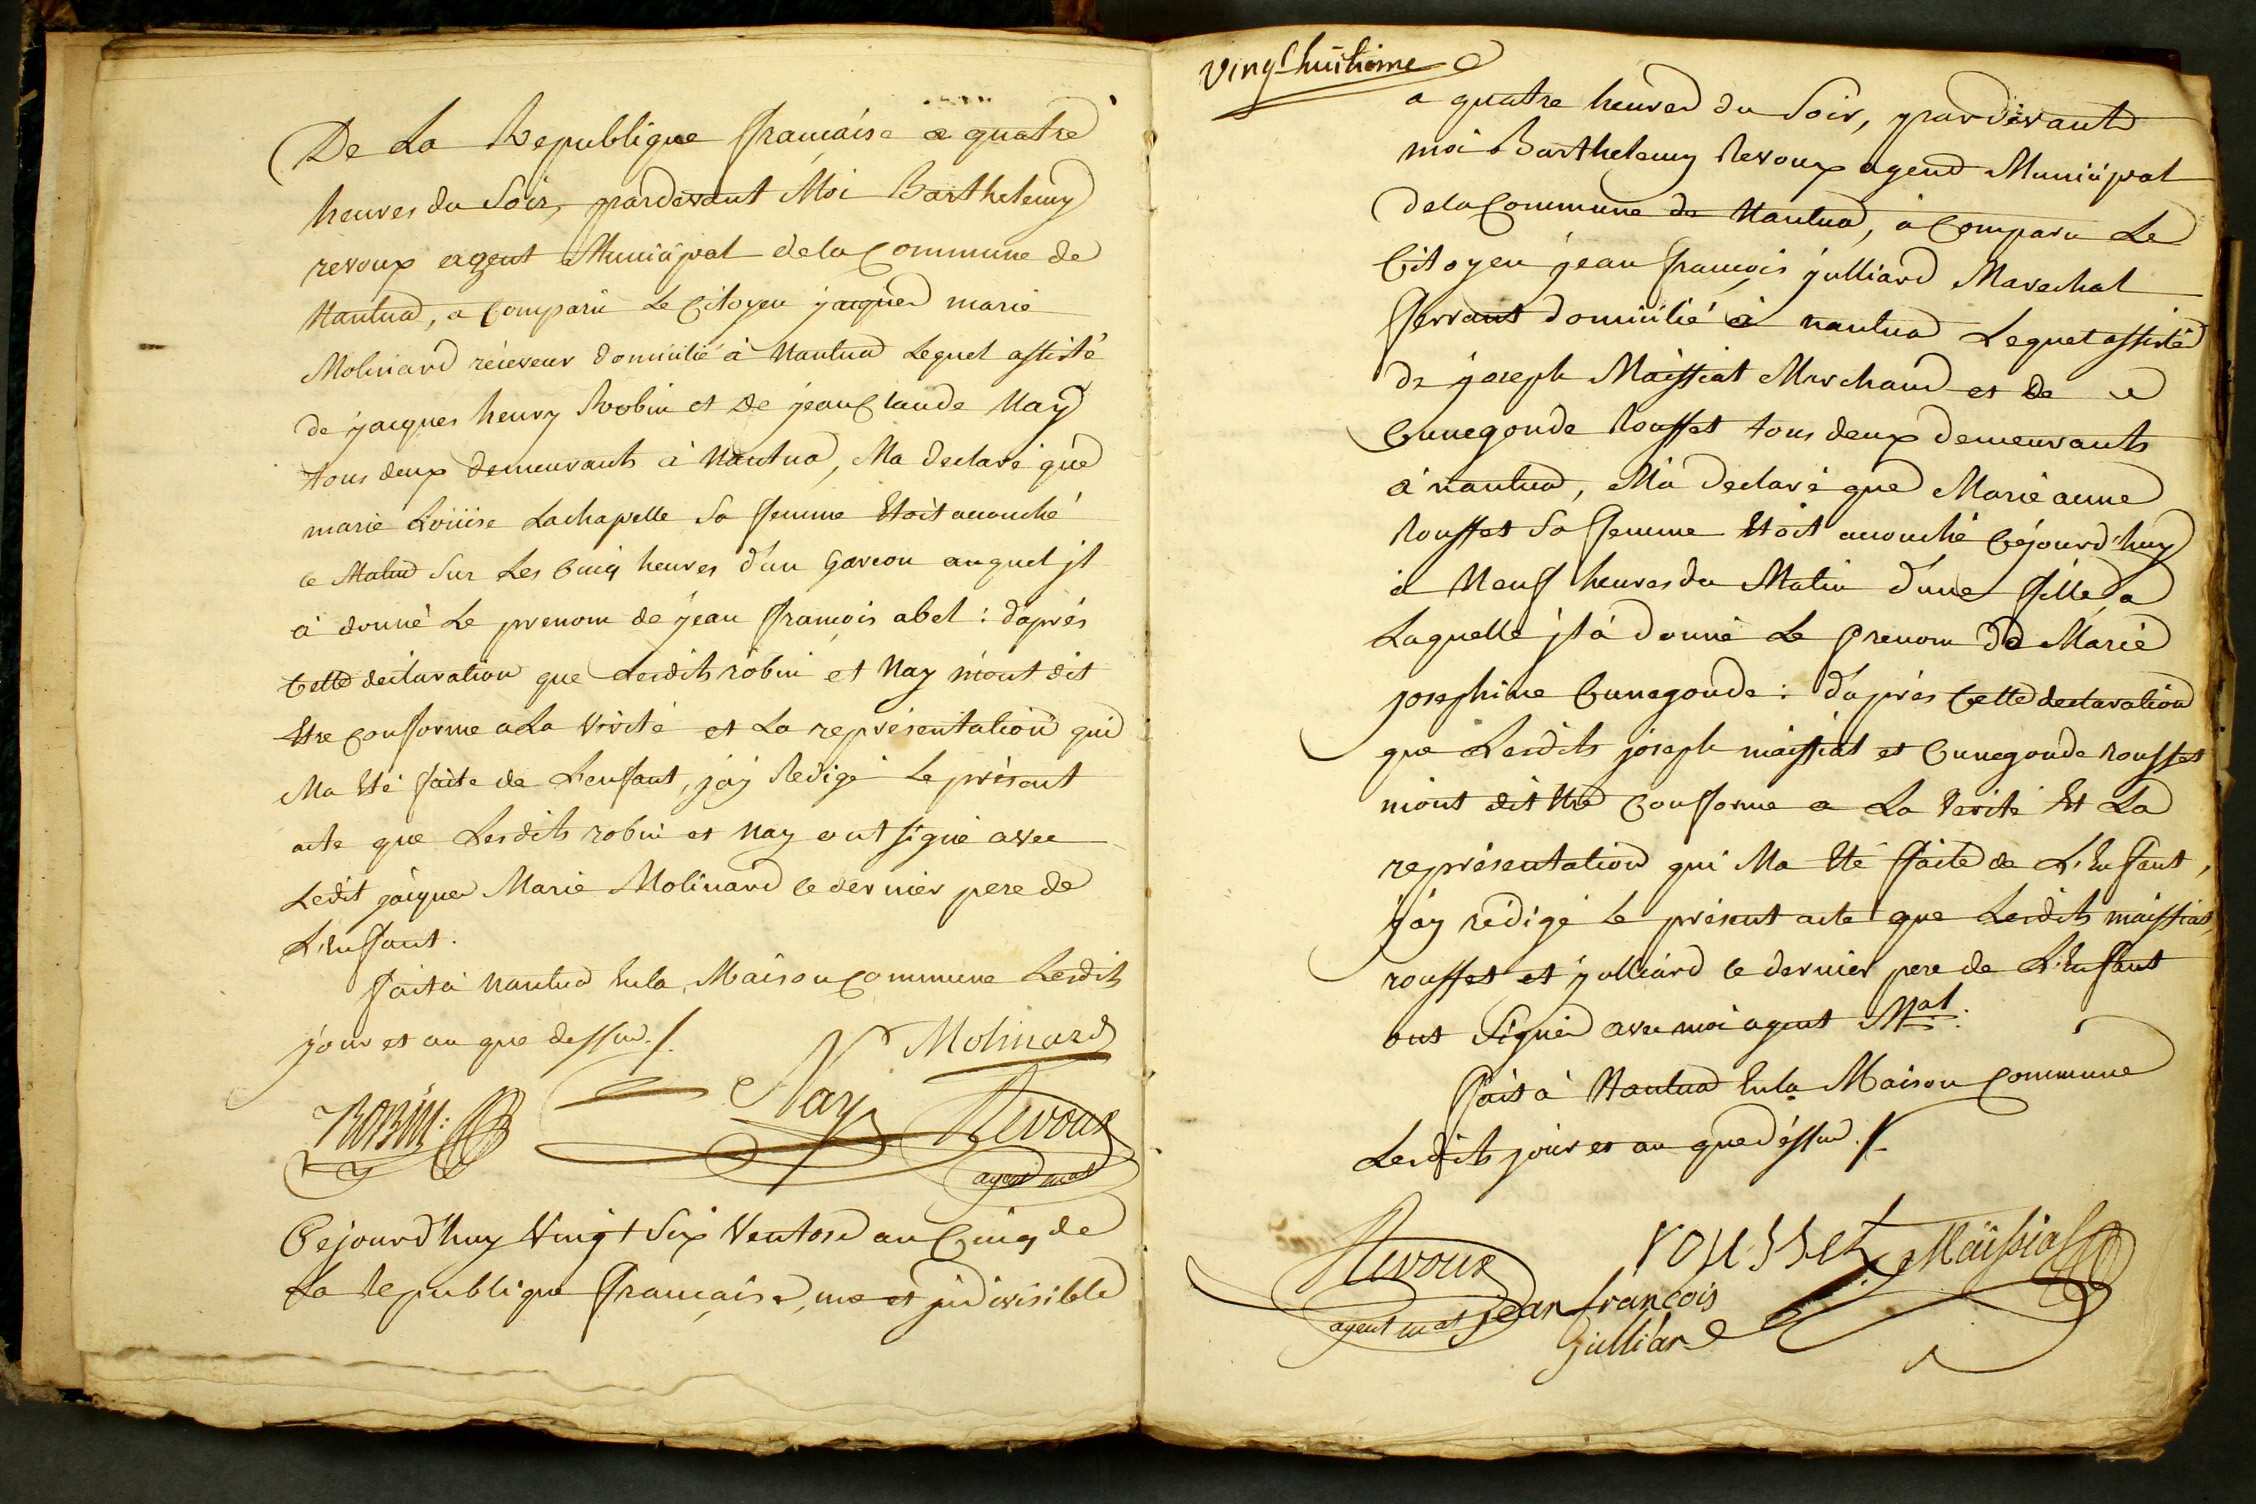 De La Republique francaise a quatre
heures du Soir, pardevant Moi Barthelemy
revoux agent Municipal de la Commune de
Nantua, a Comparu Le Citoyen jacques marie
Molinard réceveur domicilié à Nantua Lequel assisté
de jacques henry Robin et de jean Claude Nay
tous deux demeurants à Nantua, Ma declaré que
marie Loüise Lachapelle Sa femme Etoit accouché
ce Matin Sur Les Cinq heures d'un Garcon auquel jl
à donné Le prenom de jean francois abel : d'aprés
Cette declaration que Lesdits robin et Nay m'ont dit
Etre Conforme a La Verité et La représentation qui
Ma Eté faite de L'enfant, j'ay Redigé Le présent
acte que Lesdits robin et Nay ont signé avec
Ledit jacques Marie Molinard ce dernier pere de
L'Enfant.
fait à Nantua En la Maison Commune Lesdits
jour et an que dessus ./.
Molinard
Robin
Nay
Revoux
agent mal
Cejourd'huy Vingt Six Ventose an Cinq de
La Republique francaise, une et jndivisible
Vingt huitieme
a quatre heures du Soir, pardevant
moi Barthelemy Revoux agent Municipal
de la Commune de Nantua, à Comparu Le
Citoyen jean francois julliard Marechal
ferrant domicilié à nantua Lequel assisté
de joseph Maissiat Marchand et de
Cunegonde Rousset tous deux demeurants
à nantua, M'a declaré que Marie anne
Rousset Sa femme Etoit accouché Céjourd'huy
à Neuf heures du Matin d'une fille, a
Laquelle jl à donné Le Prenom de Marie
josephine Cunegonde : d'aprés Cette declaration
que Lesdits joseph maissiat et Cunegonde rousset
m'ont dit Etre Conforme a La Verité Et La
représentation qui Ma Eté faite de L'Enfant,
j'ay rédigé Le présent acte que Lesdits maissiat,
rousset et julliard ce dernier pere de L'Enfant
ont Signés avec moi agent Mal.
fait à Nantua En la Maison Commune
Lesdits jour et an que dessus ./.
Revoux
agent mal
rousset
Maissiat
jean francois
Julliard